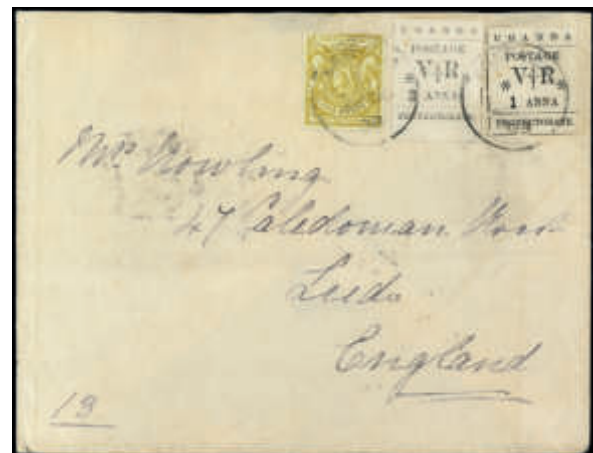 UGANDA
POSTAGE
V R
ANNA
PROTECTORATE
UGANDA
POSTAGE
V R
1 ANNA
PROTECTORATE
Mrs Nowling
47 Caledonian
Leeds
England
13